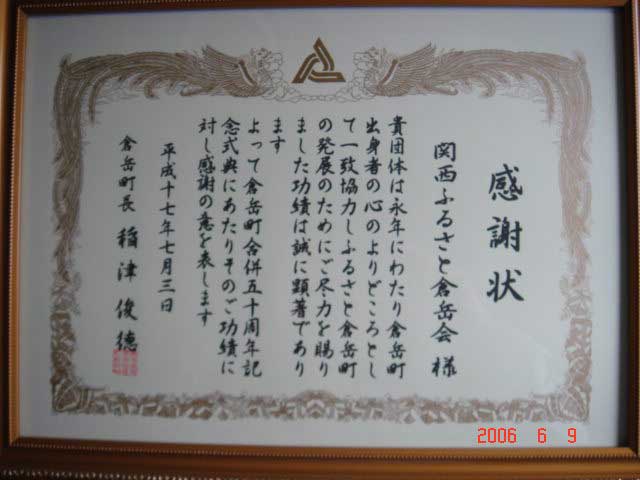 感謝状
関西ふるさと倉岳会 様
貴団体は永年にわたり倉岳町
出身者の心のよりどころとし
て一致協力しふるさと倉岳町
の発展のためにご尽力を賜り
ました功績は誠に顕著であり
ます
よって倉岳町合併五十周年記
念式典にあたりそのご功績に
対し感謝の意を表します
平成十七年七月三日
倉岳町長 稲津俊徳
2006 6 9